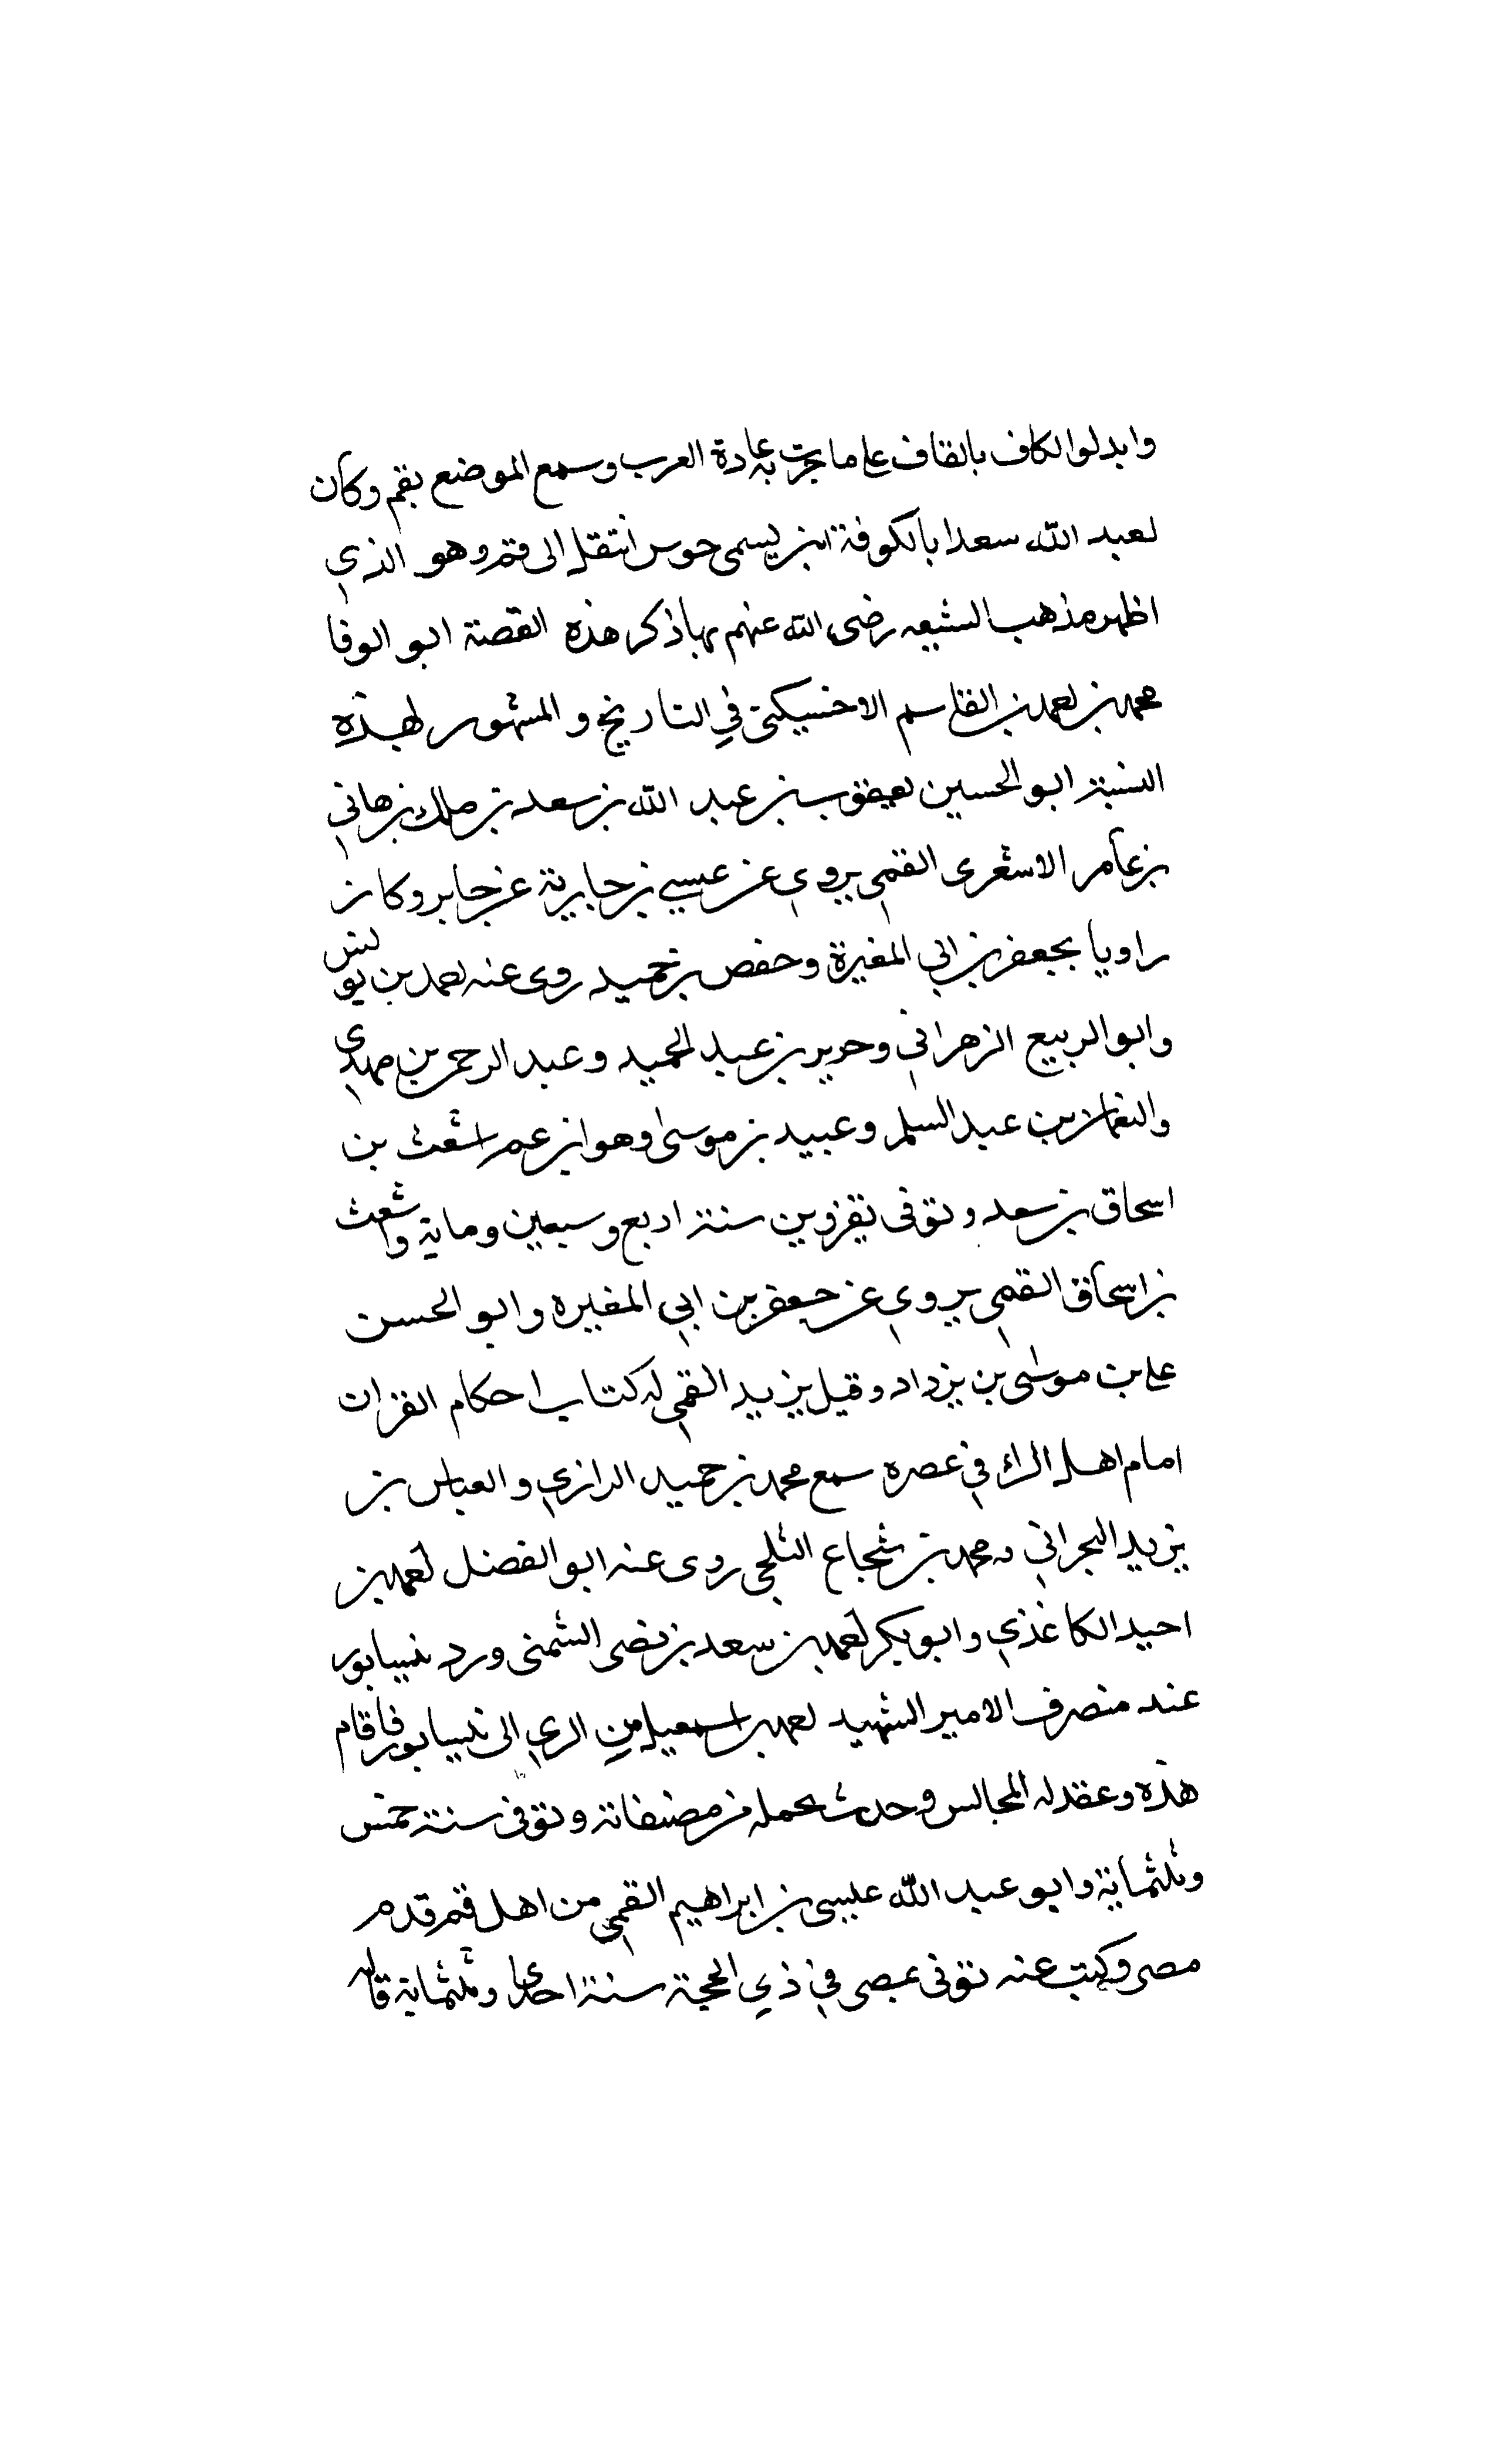 وابدلوا الكاف بالقاف على ما جرت به عادة العرب وسمع الموضع بقم وكان
لعبد الله سعدا بالكوفة ابن يسمى حوس انتقل الى قم وهو الذي
اظهر مذهب الشيعه رضى الله عنهم بها ذكر هذه القصة ابو الوفا
محمد بن احمد بن القاسم الاخسيكتى في التاريخ والمشهور لهذه
النسبة ابو الحسين يعقوب بن عبد الله بن سعد بن ملك بن هاني
بن عامر الاشعرى القمي يروي عن عيسى بن جارية عن جابر وكان
راويا بجعفر بن ابي المغيرة وحفص بن حميد روى عنه احمد بن يونس
وابو الربيع الزهراني وحرير بن عبد الحميد وعبد الرحمن بن مهدي
والنعمان بن عبد السلم وعبيد بن موسى وهو ابن عم اشعث بن
اسحاق بن سعد وتوفى بقزوين سنة اربع وسبعين وماية واشعث
بن اسحاق القمي يروي عن جعفر بن ابي المغيره وابو الحسن
على بن موسى بن يزداد وقيل يزيد القمي له كتاب احكام القران
امام اهل الراى في عصره سمع محمد بن حميد الرازي والعباس بن
يزيد البحراني ومحمد بن شجاع الثلجى روى عنه ابو الفضل احمد بن
احيد الكاغذي وابو بكر احمد بن سعد بن نصى الشمنى ورد نيسابور
عند منصرف الامير الشهيد احمد بن اسمعيل من الري الى نيسابور فاقام
هذه وعقد له المجالس وحدث بحمله من مصنفاته وتوفى سنة خمس
وثلثماية وابو عبد الله عيسى بن ابراهيم القمي من اهل قم قدم
مصر وكتب عنه توفى بمصر في ذي الحجة سنة احدى وثلثماية قاله